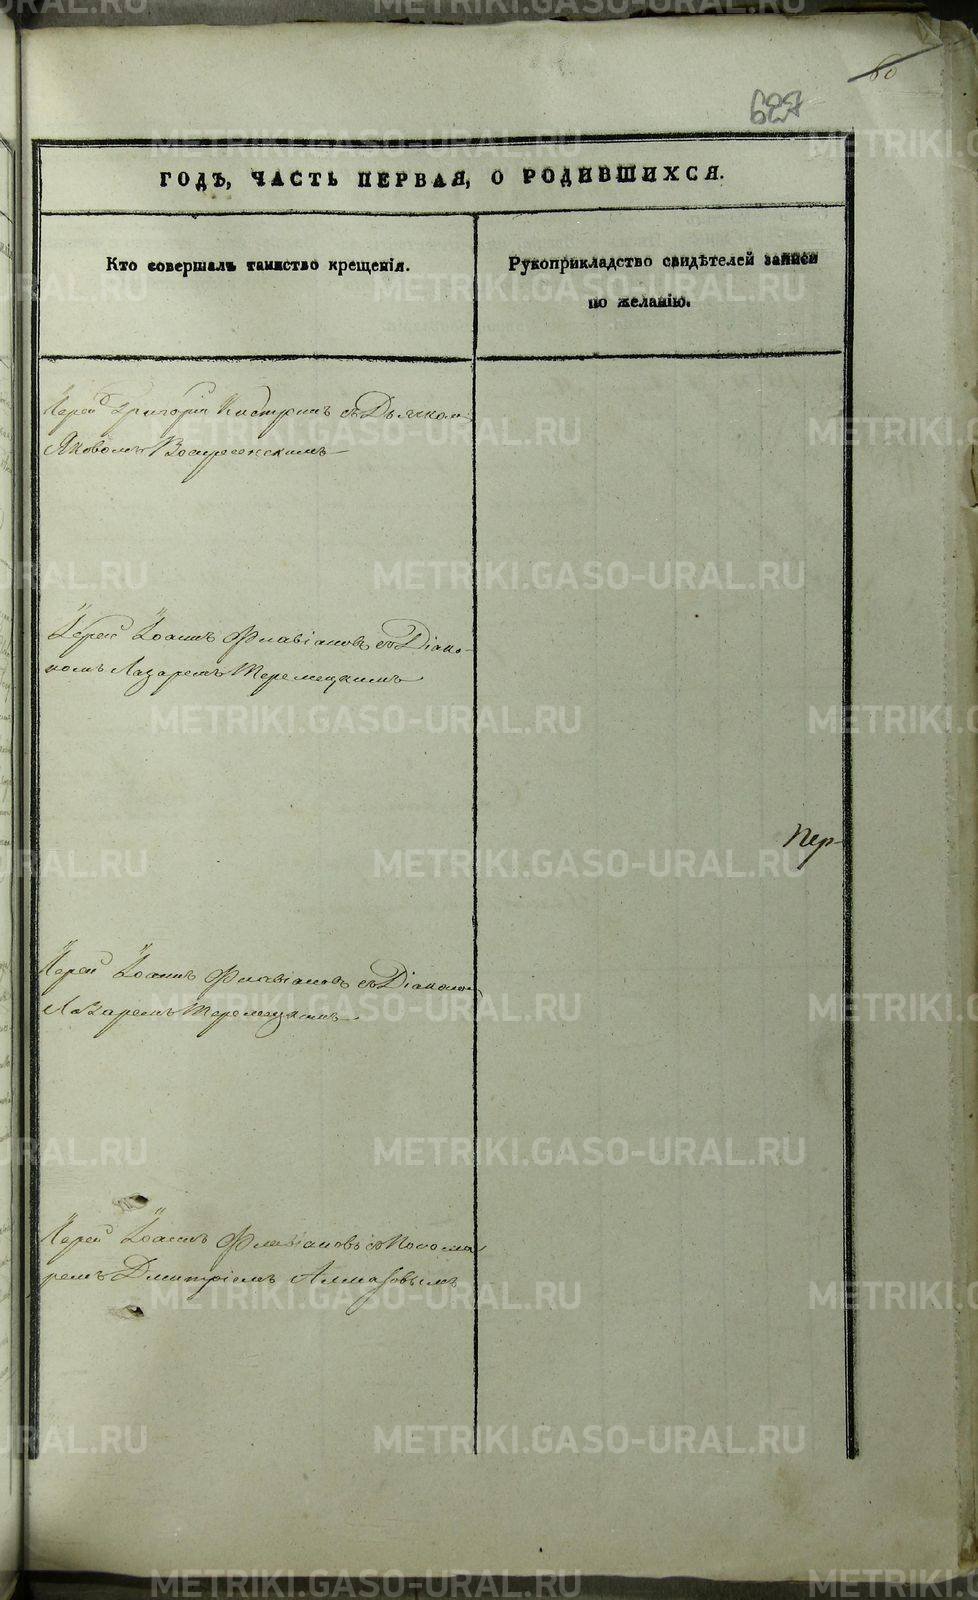 60
627
ГОДЪ, ЧАСТЬ ПЕРВАЯ, О РОДИВШИХСЯ.
Кто совершалъ таинство крещенія.
Рукоприкладство свидѣтелей записи
по желанію.
Іерей Григорій съ Дьячкомъ
Яковомъ Воскресенскимъ
Іерей Іоаннъ Флавіановъ съ Діако-
номъ Лазаремъ Теремецкимъ
Пер-
Іерей Іоаннъ Флавіановъ съ Діакономъ
Лазаремъ Теремецкимъ
Іерей Іоаннъ Флавіановъ съ Понома-
ремъ Дмитріемъ Алмазовымъ
METRIKI.GASO-URAL.RU